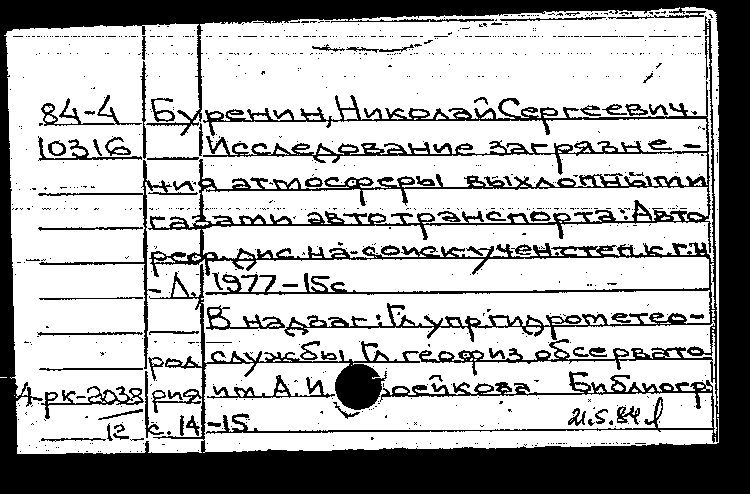 84-4 Буренин, Николай Сергеевич.
10316 Исследование загрязне-
ния атмосферы выхлопными
газами автотранспорта: Авто
реф. дис. на соиск. учен. степ. к. г. н
- Л., 1977 - 15с.
В надзаг: Гл. упр. гидрометео-
рол службы, Гл. геофиз. обсервато-
А-рк-2038 рия им. А. И. Воейкова. Библиогр:
12 с. 14-15. 21.5.84